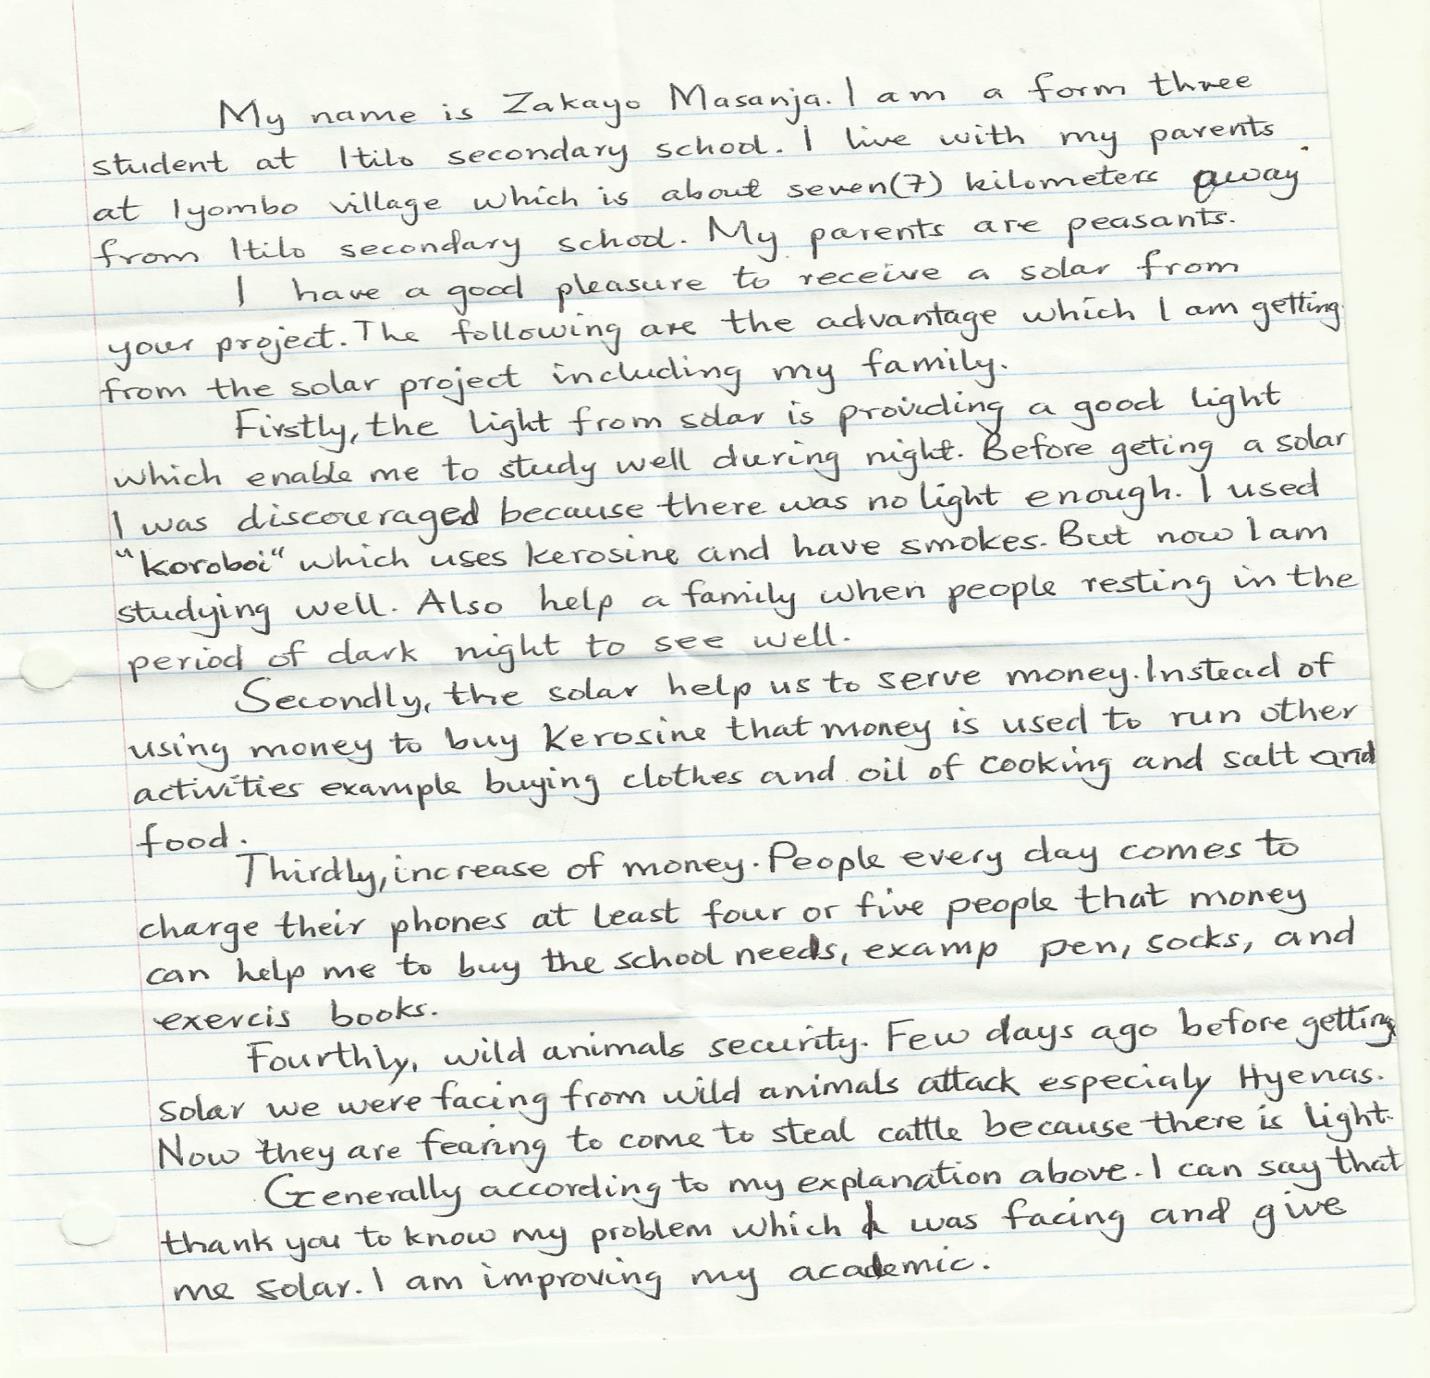 My name is Zakayo Masanja. I am a form three
student at Itilo secondary school. I live with my parents
at Iyombo village which is about seven(7) kilometers away
from Itilo secondary school. My parents are peasants.
I have a good pleasure to receive a solar from
your project. The following are the advantage which I am getting
from the solar project including my family.
Firstly, the light from solar is providing a good light
which enable me to study well during night. Before geting a solar
I was discouraged because there was no light enough. I used
"koroboi" which uses kerosine and have smokes. But now I am
studying well. Also help a family when people resting in the
period of dark night to see well.
Secondly, the solar help us to serve money. Instead of
using money to buy Kerosine that money is used to run other
activities example buying clothes and oil of cooking and salt and
food.
Thirdly, increase of money. People every day comes to
charge their phones at least four or five people that money
can help me to buy the school needs, examp pen, socks, and
exercis books.
Fourthly, wild animals security. Few days ago before getting
solar we were facing from wild animals attack especialy Hyenas.
Now they are fearing to come to steal cattle because there is light.
Generally according to my explanation above. I can say that
thank you to know my problem which I was facing and give
me solar. I am improving my academic.